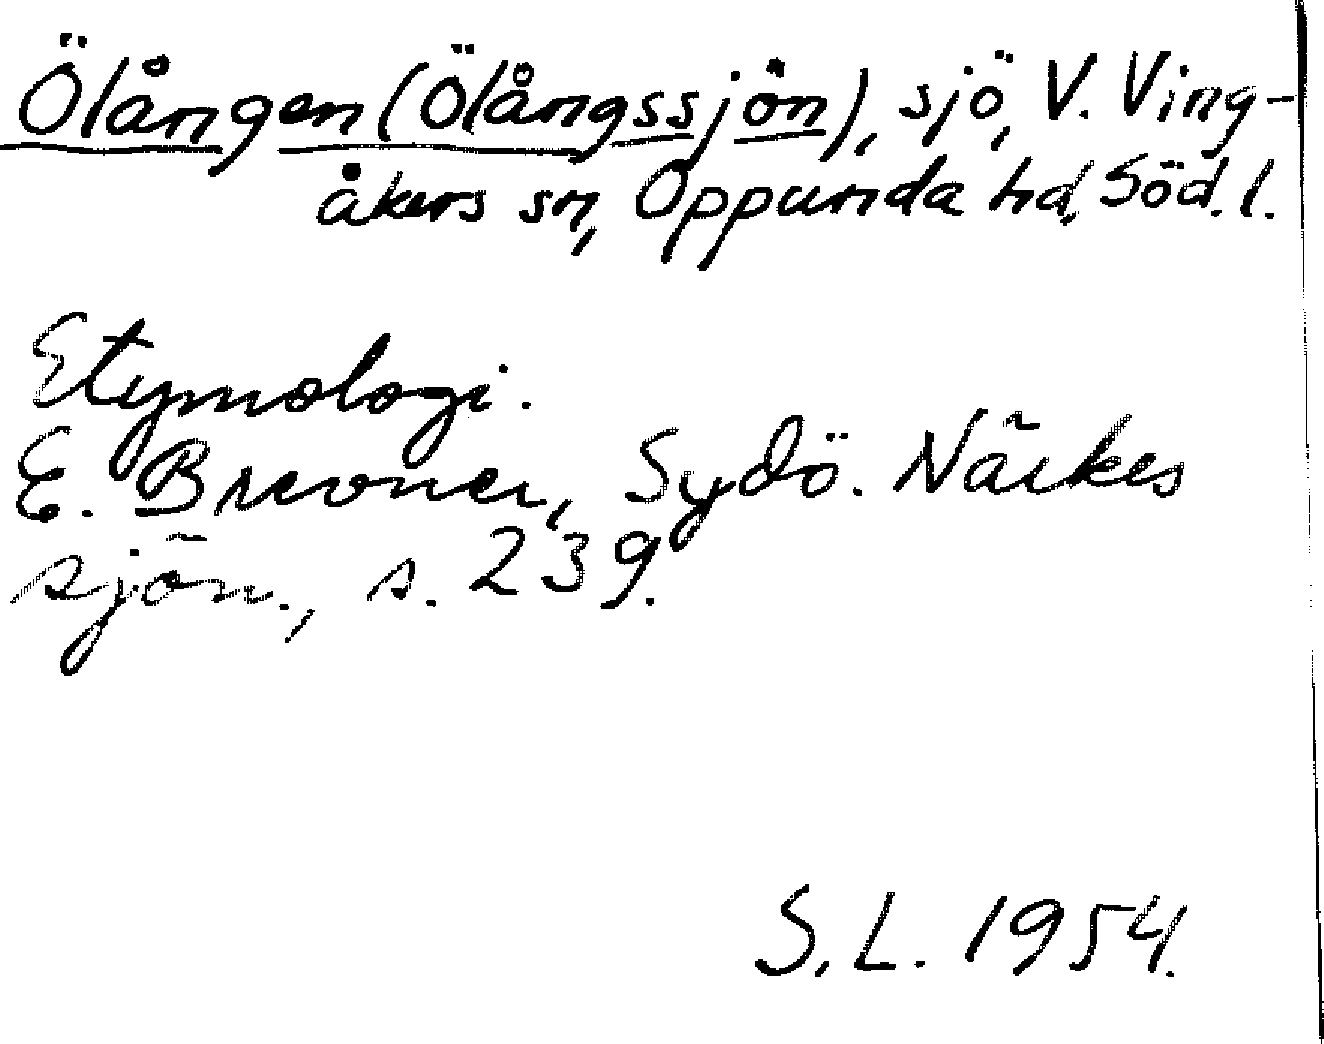 Ölången (Ölångssjön), sjö, V. Ving-
åkers sn, Oppunda hd, Söd. l.
Etymologi.
E. Brevner, Sydö. Närkes
sjön., s. 239.
S. L. 1954.